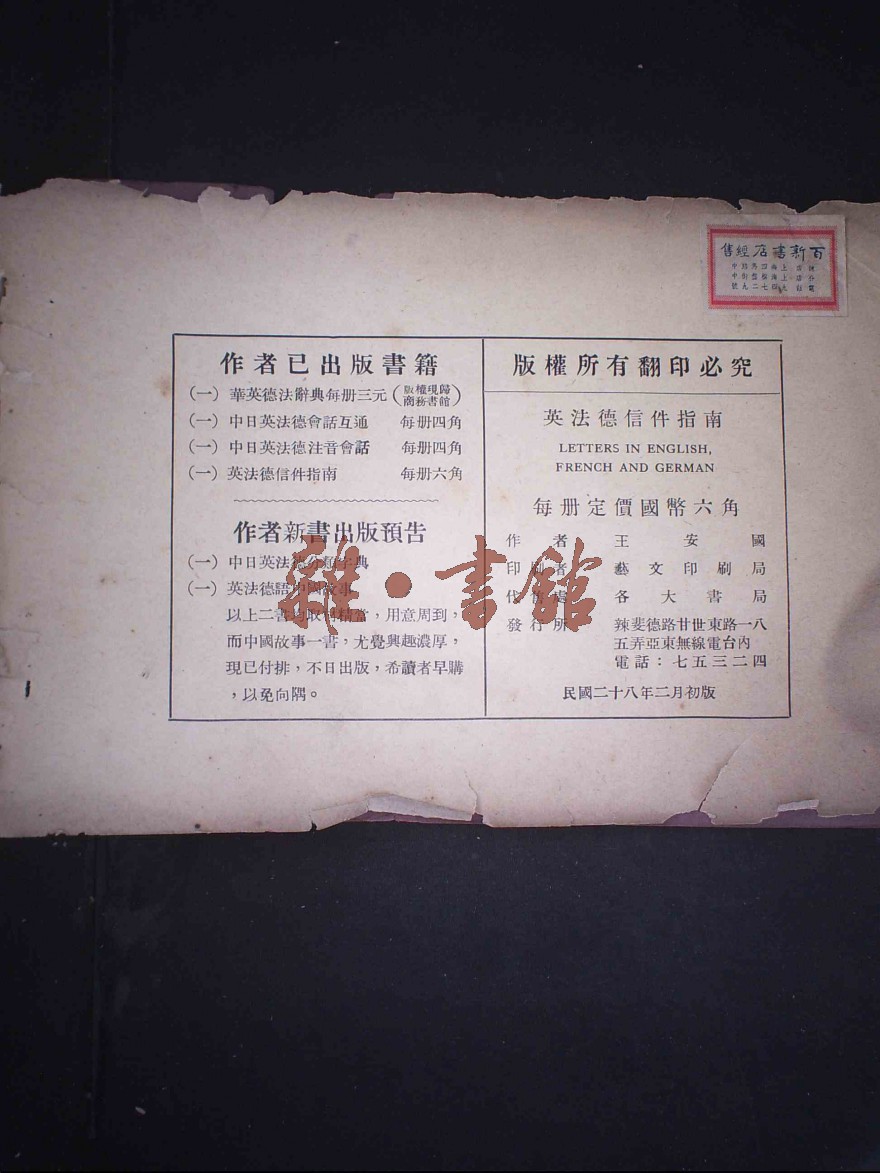 百新書店經售
作者已出版書籍
(一) 華英德法辭典每册三元(版權現歸商務書館)
(一) 中日英法德會話互通 每册四角
(一) 中日英法德注音會話 每册四角
(一) 英法德信件指南 每册六角
作者新書出版預告
(一) 中日英法德分類字典
(一) 英法德語中國故事
以上二書均取材精當，用意周到，
而中國故事一書，尤覺興趣濃厚，
現已付排，不日出版，希讀者早購
，以免向隅。
版權所有翻印必究
英法德信件指南
LETTERS IN ENGLISH,
FRENCH AND GERMAN
每册定價國幣六角
作者 王安國
印刷者 藝文印刷局
代售處 各大書局
發行所 辣斐德路廿世東路一八
五弄亞東無線電台內
電話：七五三二四
民國二十八年二月初版
雜·書館